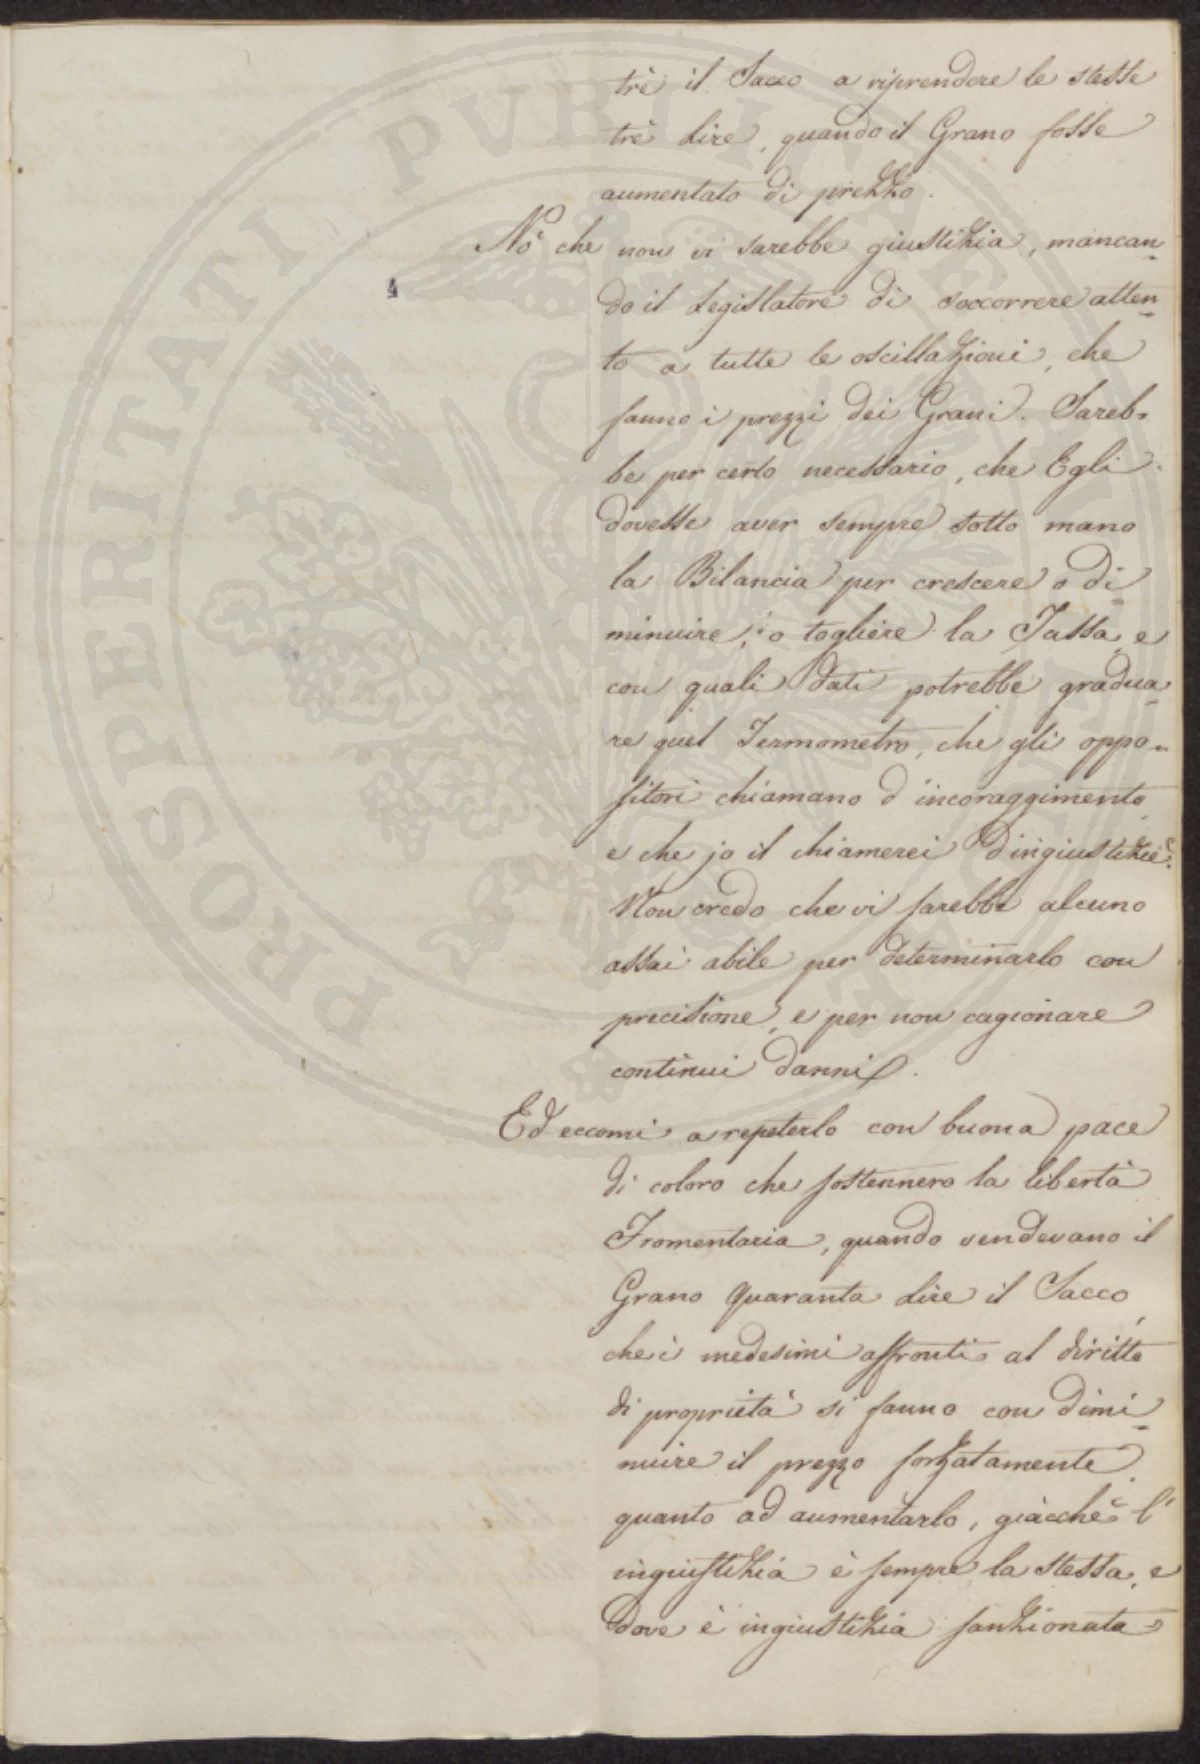 trè il Sacco a riprendere le stesse
trè Lire, quando il Grano fosse
aumentato di prezzo.
Nò che non vi sarebbe giustizia, mancan=
do il Legislatore di soccorrere atten=
to a tutte le oscillazioni, che
fanno i prezzi dei Grani. Sareb=
be per certo necessario, che Egli
dovesse aver sempre sotto mano
la Bilancia per crescere o di=
minuire, o togliere la Tassa, e
con quali dati potrebbe gradua=
re quel Termometro, che gli oppo=
sitori chiamano d'incoraggimento
e che jo il chiamerei d'ingiustizie?
Non credo che vi sarebbe alcuno
assai abile per determinarlo con
precisione, e per non cagionare
continui danni.
Ed eccomi a repeterlo con buona pace
di coloro che sostennero la libertà
Fromentaria, quando vendevano il
Grano Quaranta Lire il Sacco,
che i medesimi affronti al diritto
di proprietà si fanno con dimi=
nuire il prezzo forzatamente
quanto ad aumentarlo, giàcchè l'
ingiustizia è sempre la stessa, e
dove è ingiustizia sanzionata
PROSPERITATI PVBLICAE